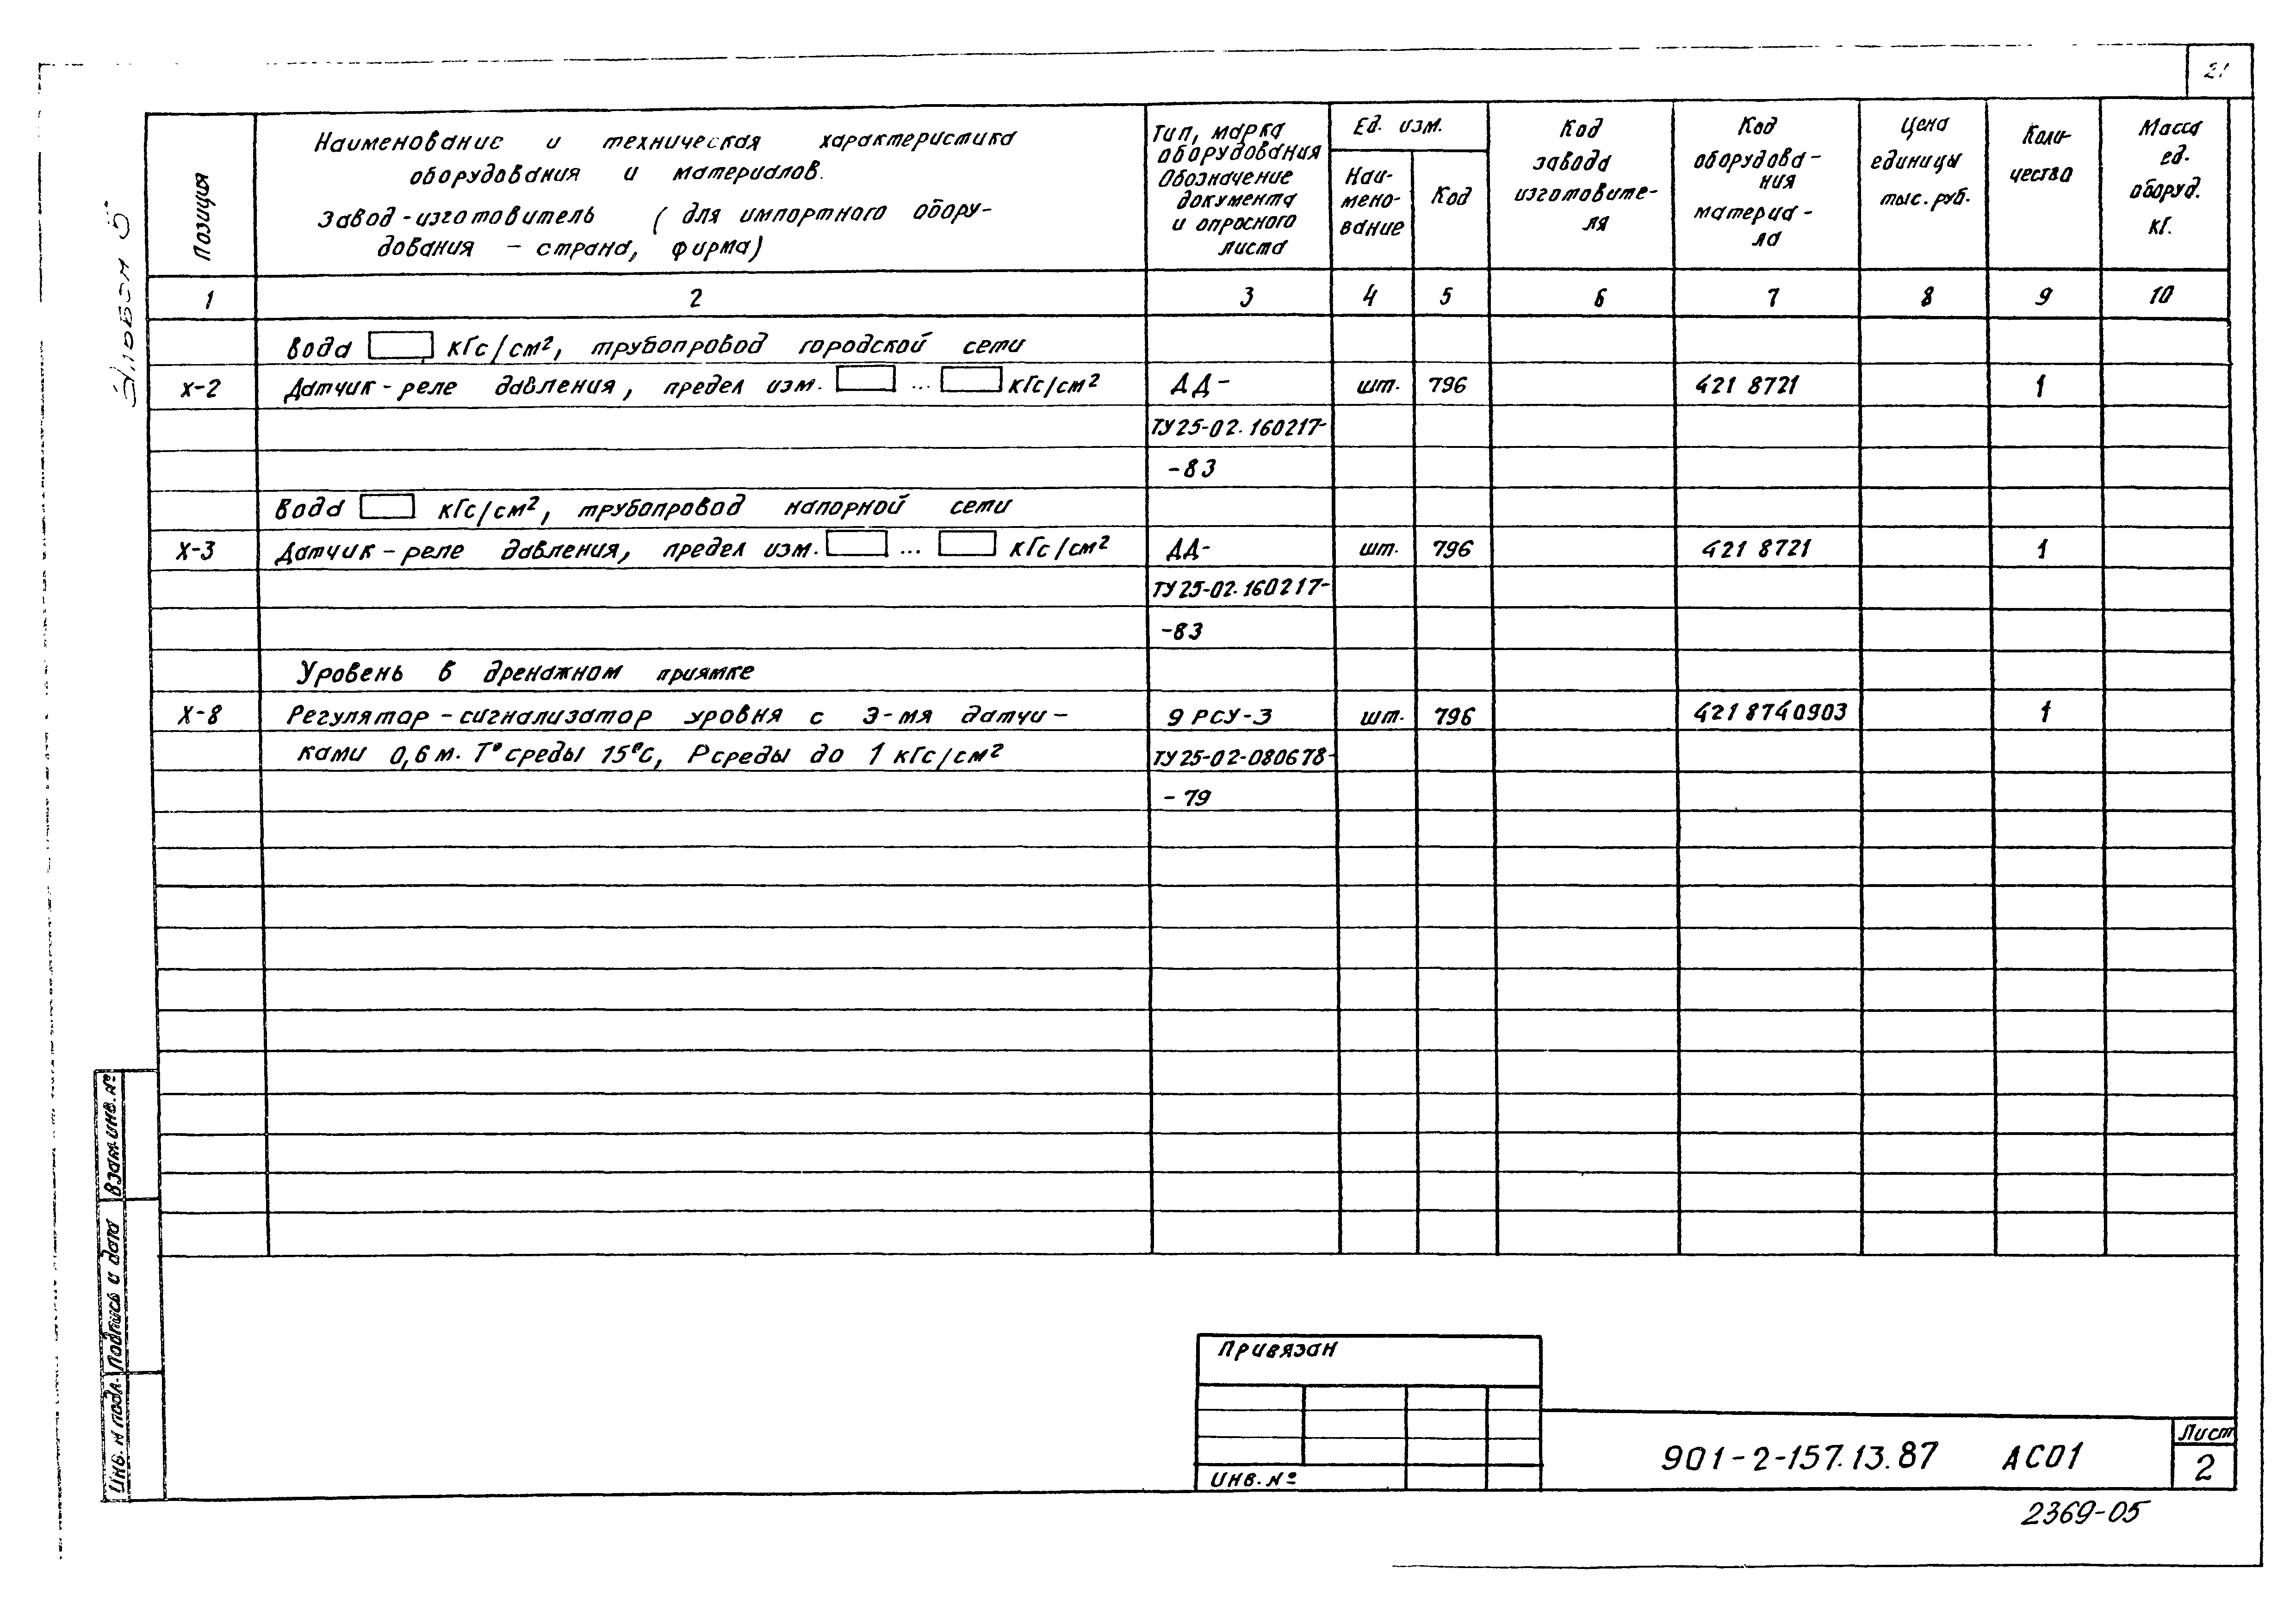 21
Альбом 5
Позиция
Наименование и техническая характеристика
оборудования и материалов.
Завод-изготовитель (для импортного обору-
дования - страна, фирма)
Тип, марка
оборудования
Обозначение
документа
и опросного
листа
Ед. изм.
Наи-
мено-
вание
Код
Код
завода
изготовите-
ля
Код
оборудова-
ния
материа-
ла
Цена
единицы
тыс. руб.
Коли-
чество
Масса
ед.
оборуд.
кг.
1 2 3 4 5 6 7 8 9 10
Вода кгс/см², трубопровод городской сети
Х-2 Датчик-реле давления, предел изм. ... кгс/см² ДД- шт. 796 421 8721 1
ТУ25-02.160217-
-83
Вода кгс/см², трубопровод напорной сети
Х-3 Датчик-реле давления, предел изм. ... кгс/см² ДД- шт. 796 421 8721 1
ТУ25-02.160217-
-83
Уровень в дренажном приямке
Х-8 Регулятор-сигнализатор уровня с 3-мя датчи- 9 РСУ-3 шт. 796 421 8740903 1
ками 0,6 м. Т° среды 15°С, Р среды до 1 кгс/см² ТУ25-02-080678-
-79
Взам. инв. №
Подпись и дата
Инв. № подл.
Привязан
Инв. №
901-2-157.13.87 АС01
Лист
2
2369-05